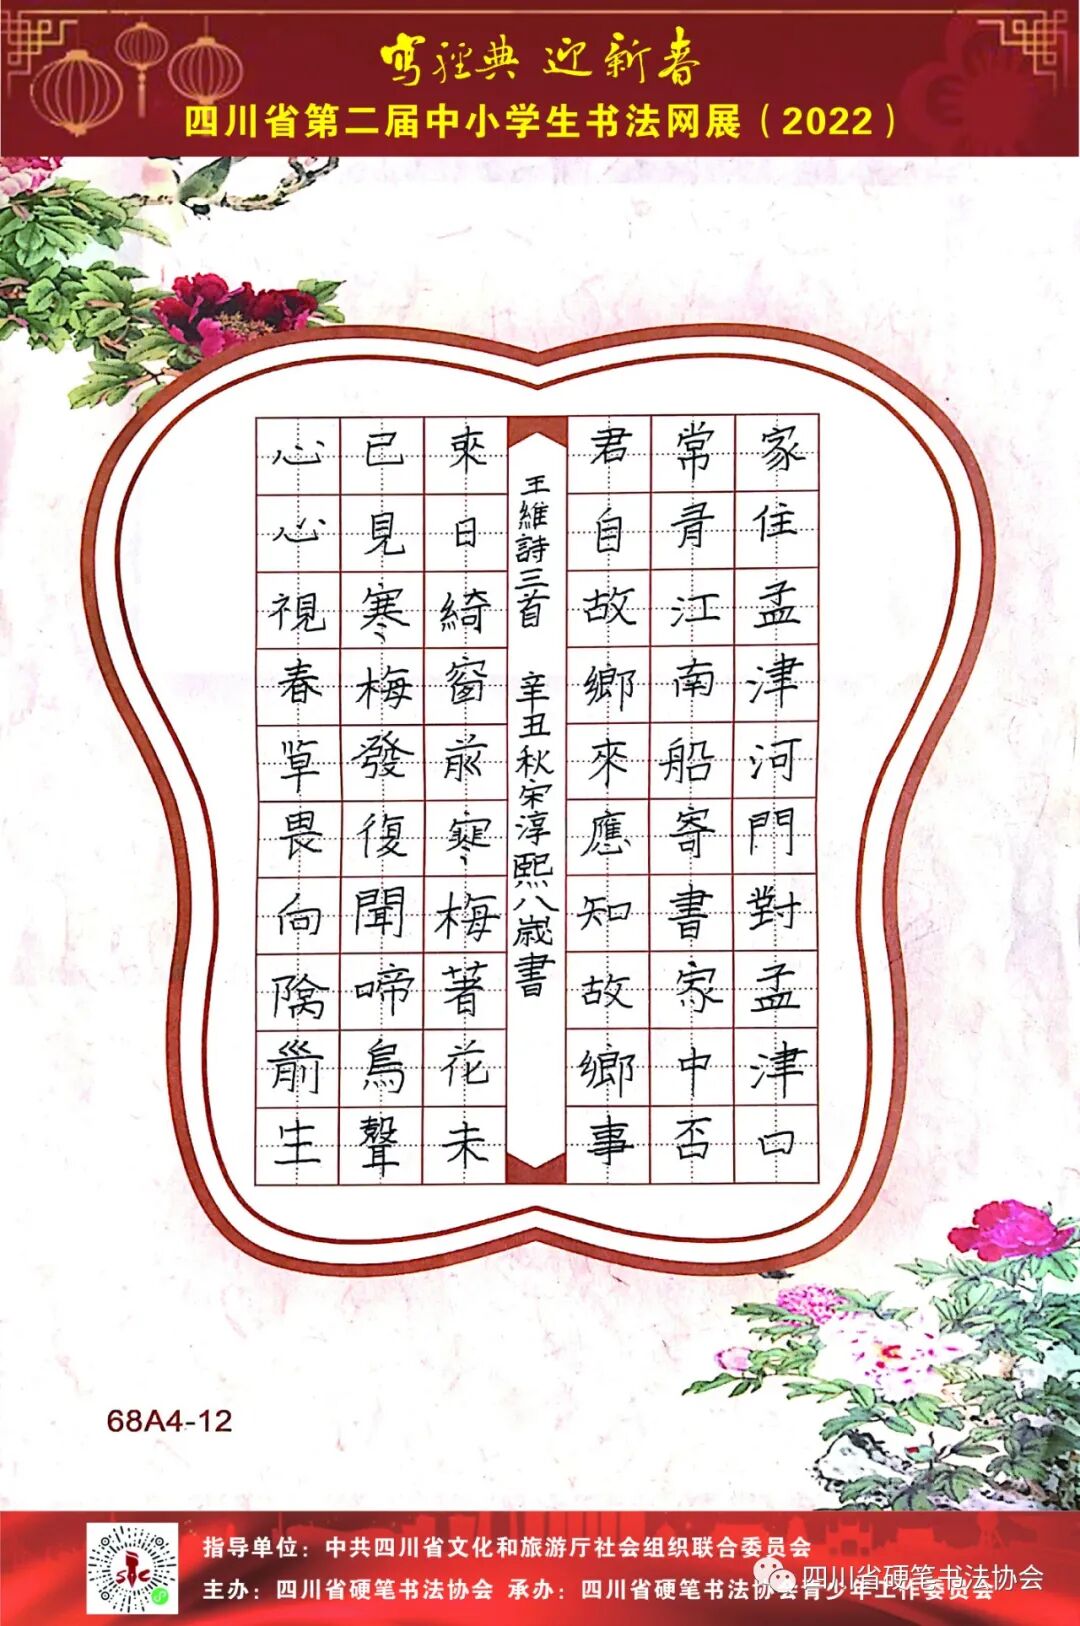 寫經典 迎新春
四川省第二届中小学生书法网展（2022）
家住孟津河門對孟津口
常有江南船寄書家中否
君自故鄉來應知故鄉事
王維詩三首 辛丑秋宋淳熙八歲書
來日綺窗前寒梅著花未
已見寒梅發復聞啼鳥聲
心心視春草畏向前生
68A4-12
指导单位：中共四川省文化和旅游厅社会组织联合委员会
主办：四川省硬笔书法协会 承办：四川省硬笔书法协会青少年工作委员会
四川省硬笔书法协会